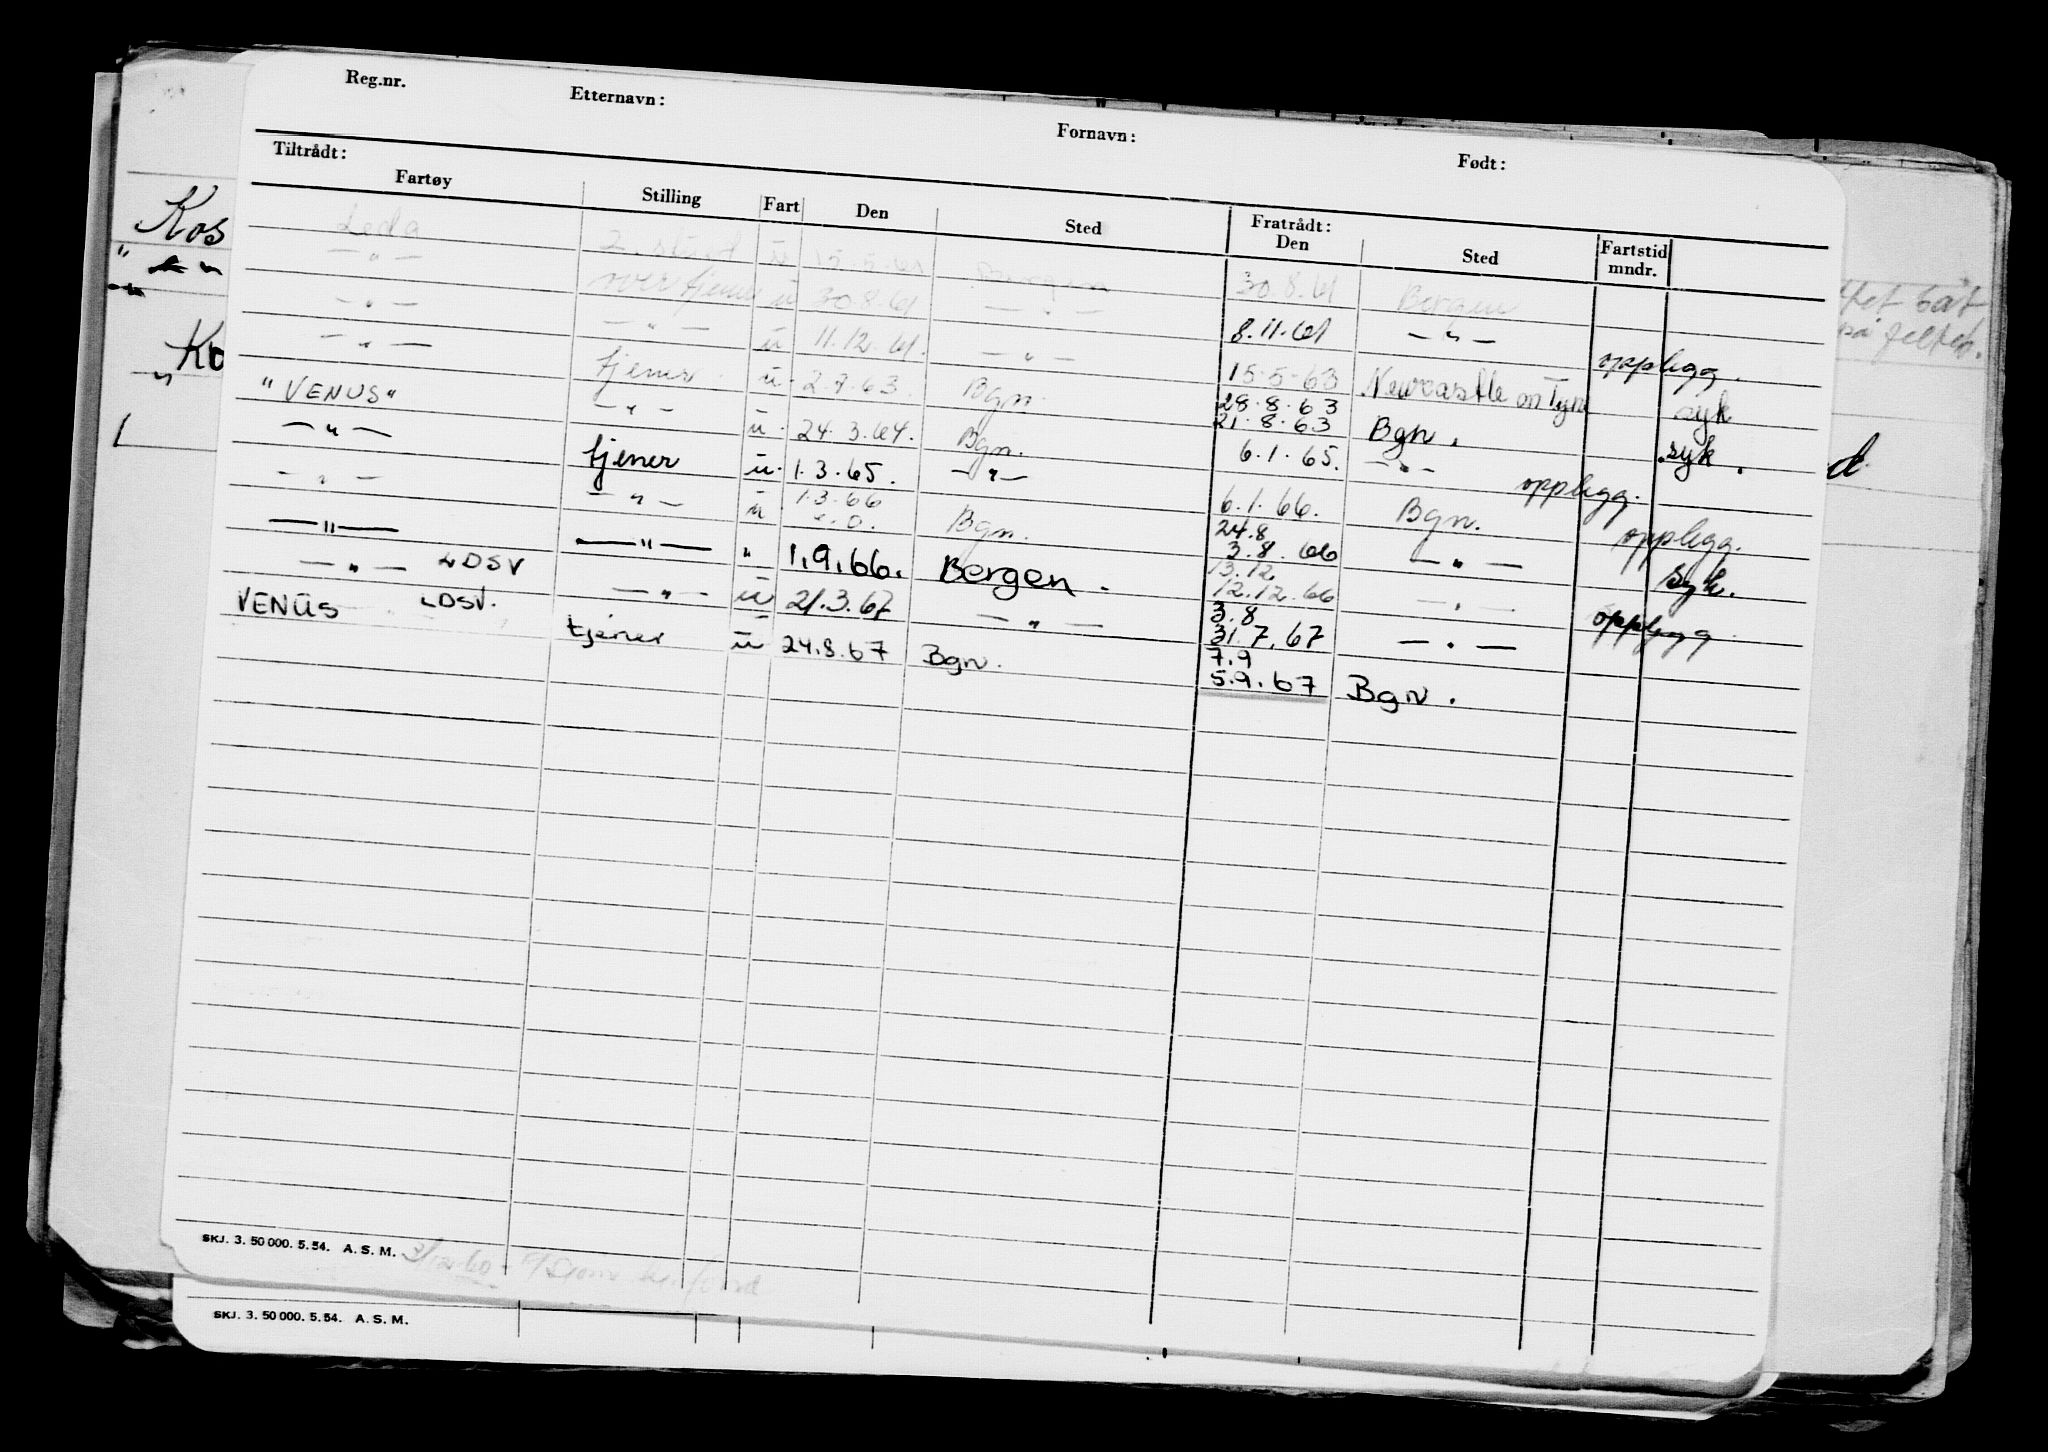 Reg.nr. Etternavn: Fornavn: Født:
Tiltrådt: Fratrådt:
Fartøy Stilling Fart Den Sted Den Sted Fartstid mndr.
Leda 2. stuert u 15.5.61 Bergen 30.8.61 Bergen
— " — overtjener u 30.8.61 — " — 8.11.61 — " — opplegg.
— " — — " — u 11.12.61. — " — 15.5.63 Newcastle on Tyne syk
— " — tjener u. 2.7.63. Bgn. 28.8.63 21.8.63 Bgn. syk.
"VENUS" — " — u. 24.3.64. Bgn. 6.1.65. — " — opplegg.
— " — tjener u. 1.3.65. — " — 6.1.66. Bgn. opplegg.
— " — — " — u 1.3.66 Bgn. 24.8 3.8.66 — " — syk.
— " — — " — " 1.9.66. Bergen. 13.12 12.12.66 — " — opplegg
— " — LDSV — " — u 21.3.67 — " — 3.8 31.7.67 — " —
VENUS LDSV. tjener u 24.8.67 Bgn. 7.9 5.9.67 Bgn.
Kos
"
Ko
"
tet båt
på feltet.
d
SKJ. 3. 50 000. 5. 54. A. S. M. 3/12 60
SKJ. 3. 50 000. 5. 54. A. S. M.